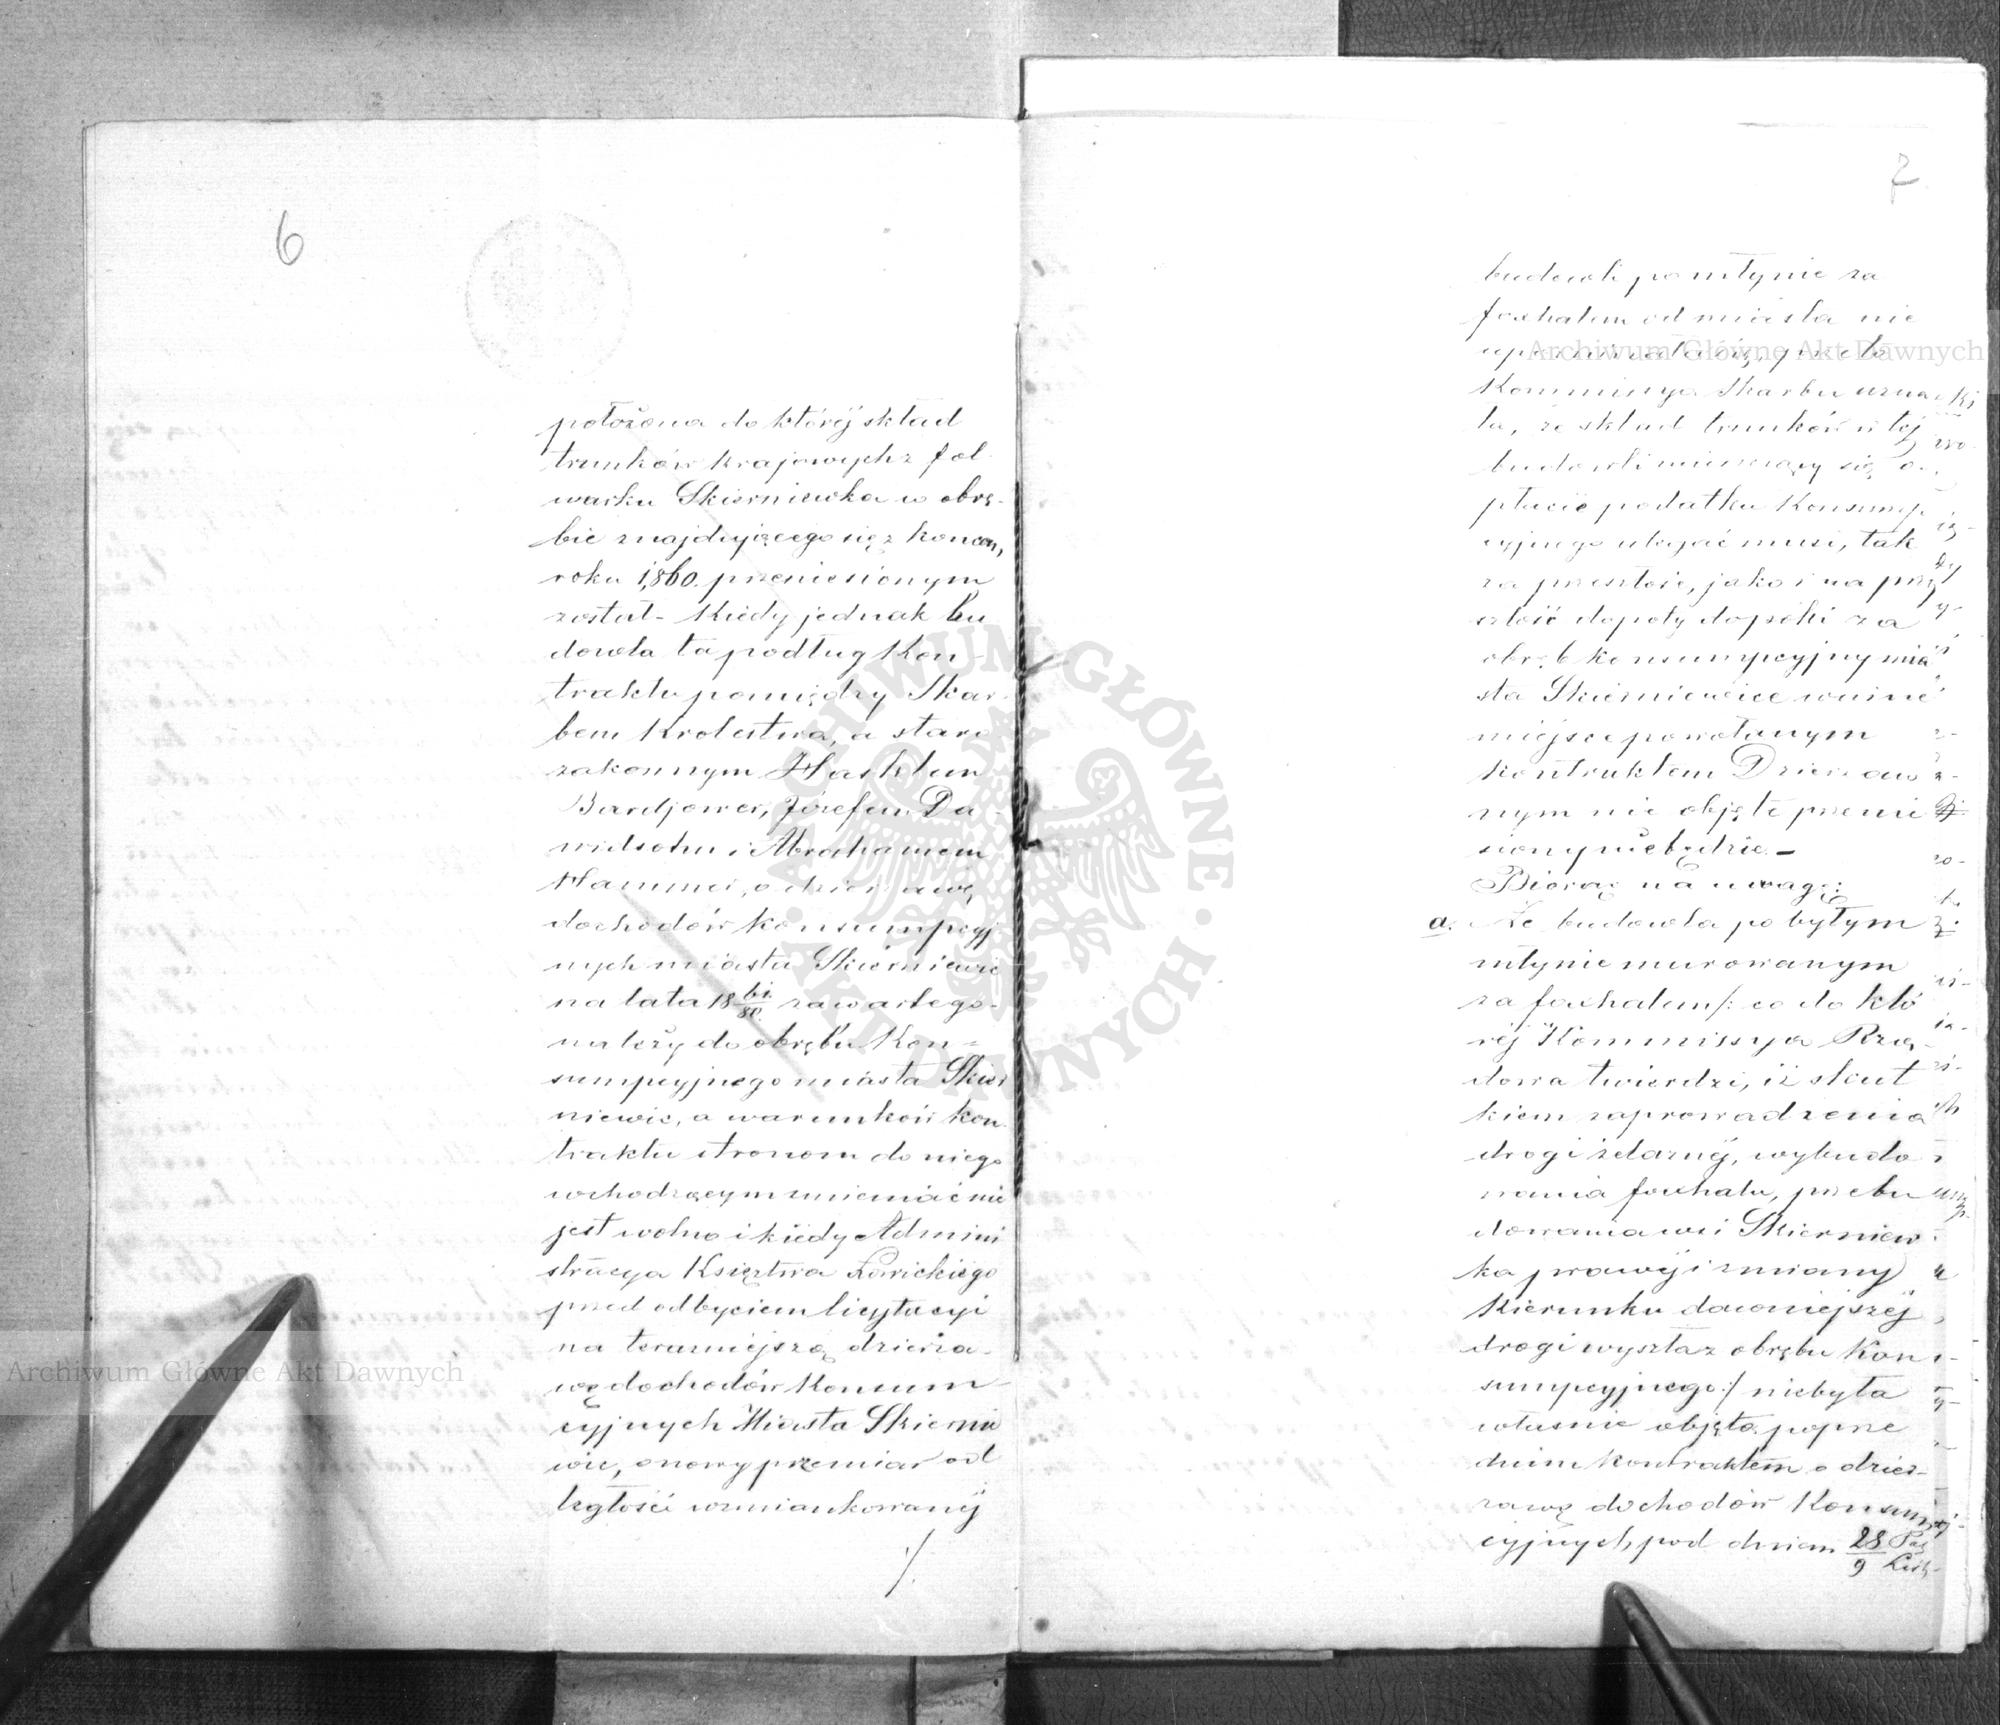 6
położona do któréj skład
trunków krajowych z fol-
warku Skierniewka w obrę-
bie znajdującego się z końcem
roku 1860. przeniesionym
został - Kiedy jednak bu
dowla ta podług Kon-
traktu pomiędzy Skar-
bem Królestwa, a staro
zakonnym Haskłem
Bardjower, Józefem Da-
widsohn i Abrahamem
Hammer, o dzierżawę
dochodów konsumpcyj
nych miasta Skierniewic
na lata 18 61/80. zawartego-
należy do obrębu Kon-
sumpcyjnego miasta Skier
niewic, a warunków kon
traktu stronom do niego
wchodzącym zmieniać nie
jest wolno i kiedy Admini
stracya Księztwa Łowickiego
przed odbyciem licytacyi
na teraźniejszą dzierża-
wę dochodów Konsum-
cyjnych Miasta Skiernie
wic, o nowy przemiar od
ległości wzmiankowanéj
./.
7
budowli po młynie za
foxhalem od miasta nie
upominała się, przeto
Kommissya Skarbu uzna
ła, że skład trunków w téj
budowli mieszczący się o-
płacie podatku Konsump
cyjnego ulegać musi, tak
za przeszłość, jako i na przy
szłość dopóty dopóki za
obręb konsumpcyjny mia
sta Skierniewice w inne
miejsce powołanym
kontraktem Dzierżaw
nym nie objęte przenie
siony nie będzie.-
Biorąc na uwagę:
a. Że budowla po byłym
młynie murowanym
za foxhalem /: co do któ
réj Kommissya Rzą-
dowa twierdzi, iż skut
kiem zaprowadzenia
drogi żelaznéj, wybudo
wania foxhalu, przebu
dowania wsi Skierniew
ka prawéj i zmiany
kierunku dawniejszéj
drogi wyszła z obrębu Kon
sumpcyjnego :/ niebyła
właśnie objętą poprze
dnim kontraktem o dzier-
żawę dochodów Konsump
cyjnych pod dniem 28/9 Paź/List-
Archiwum Główne Akt Dawnych
Archiwum Główne Akt Dawnych
ARCHIWUM GŁÓWNE AKT DAWNYCH